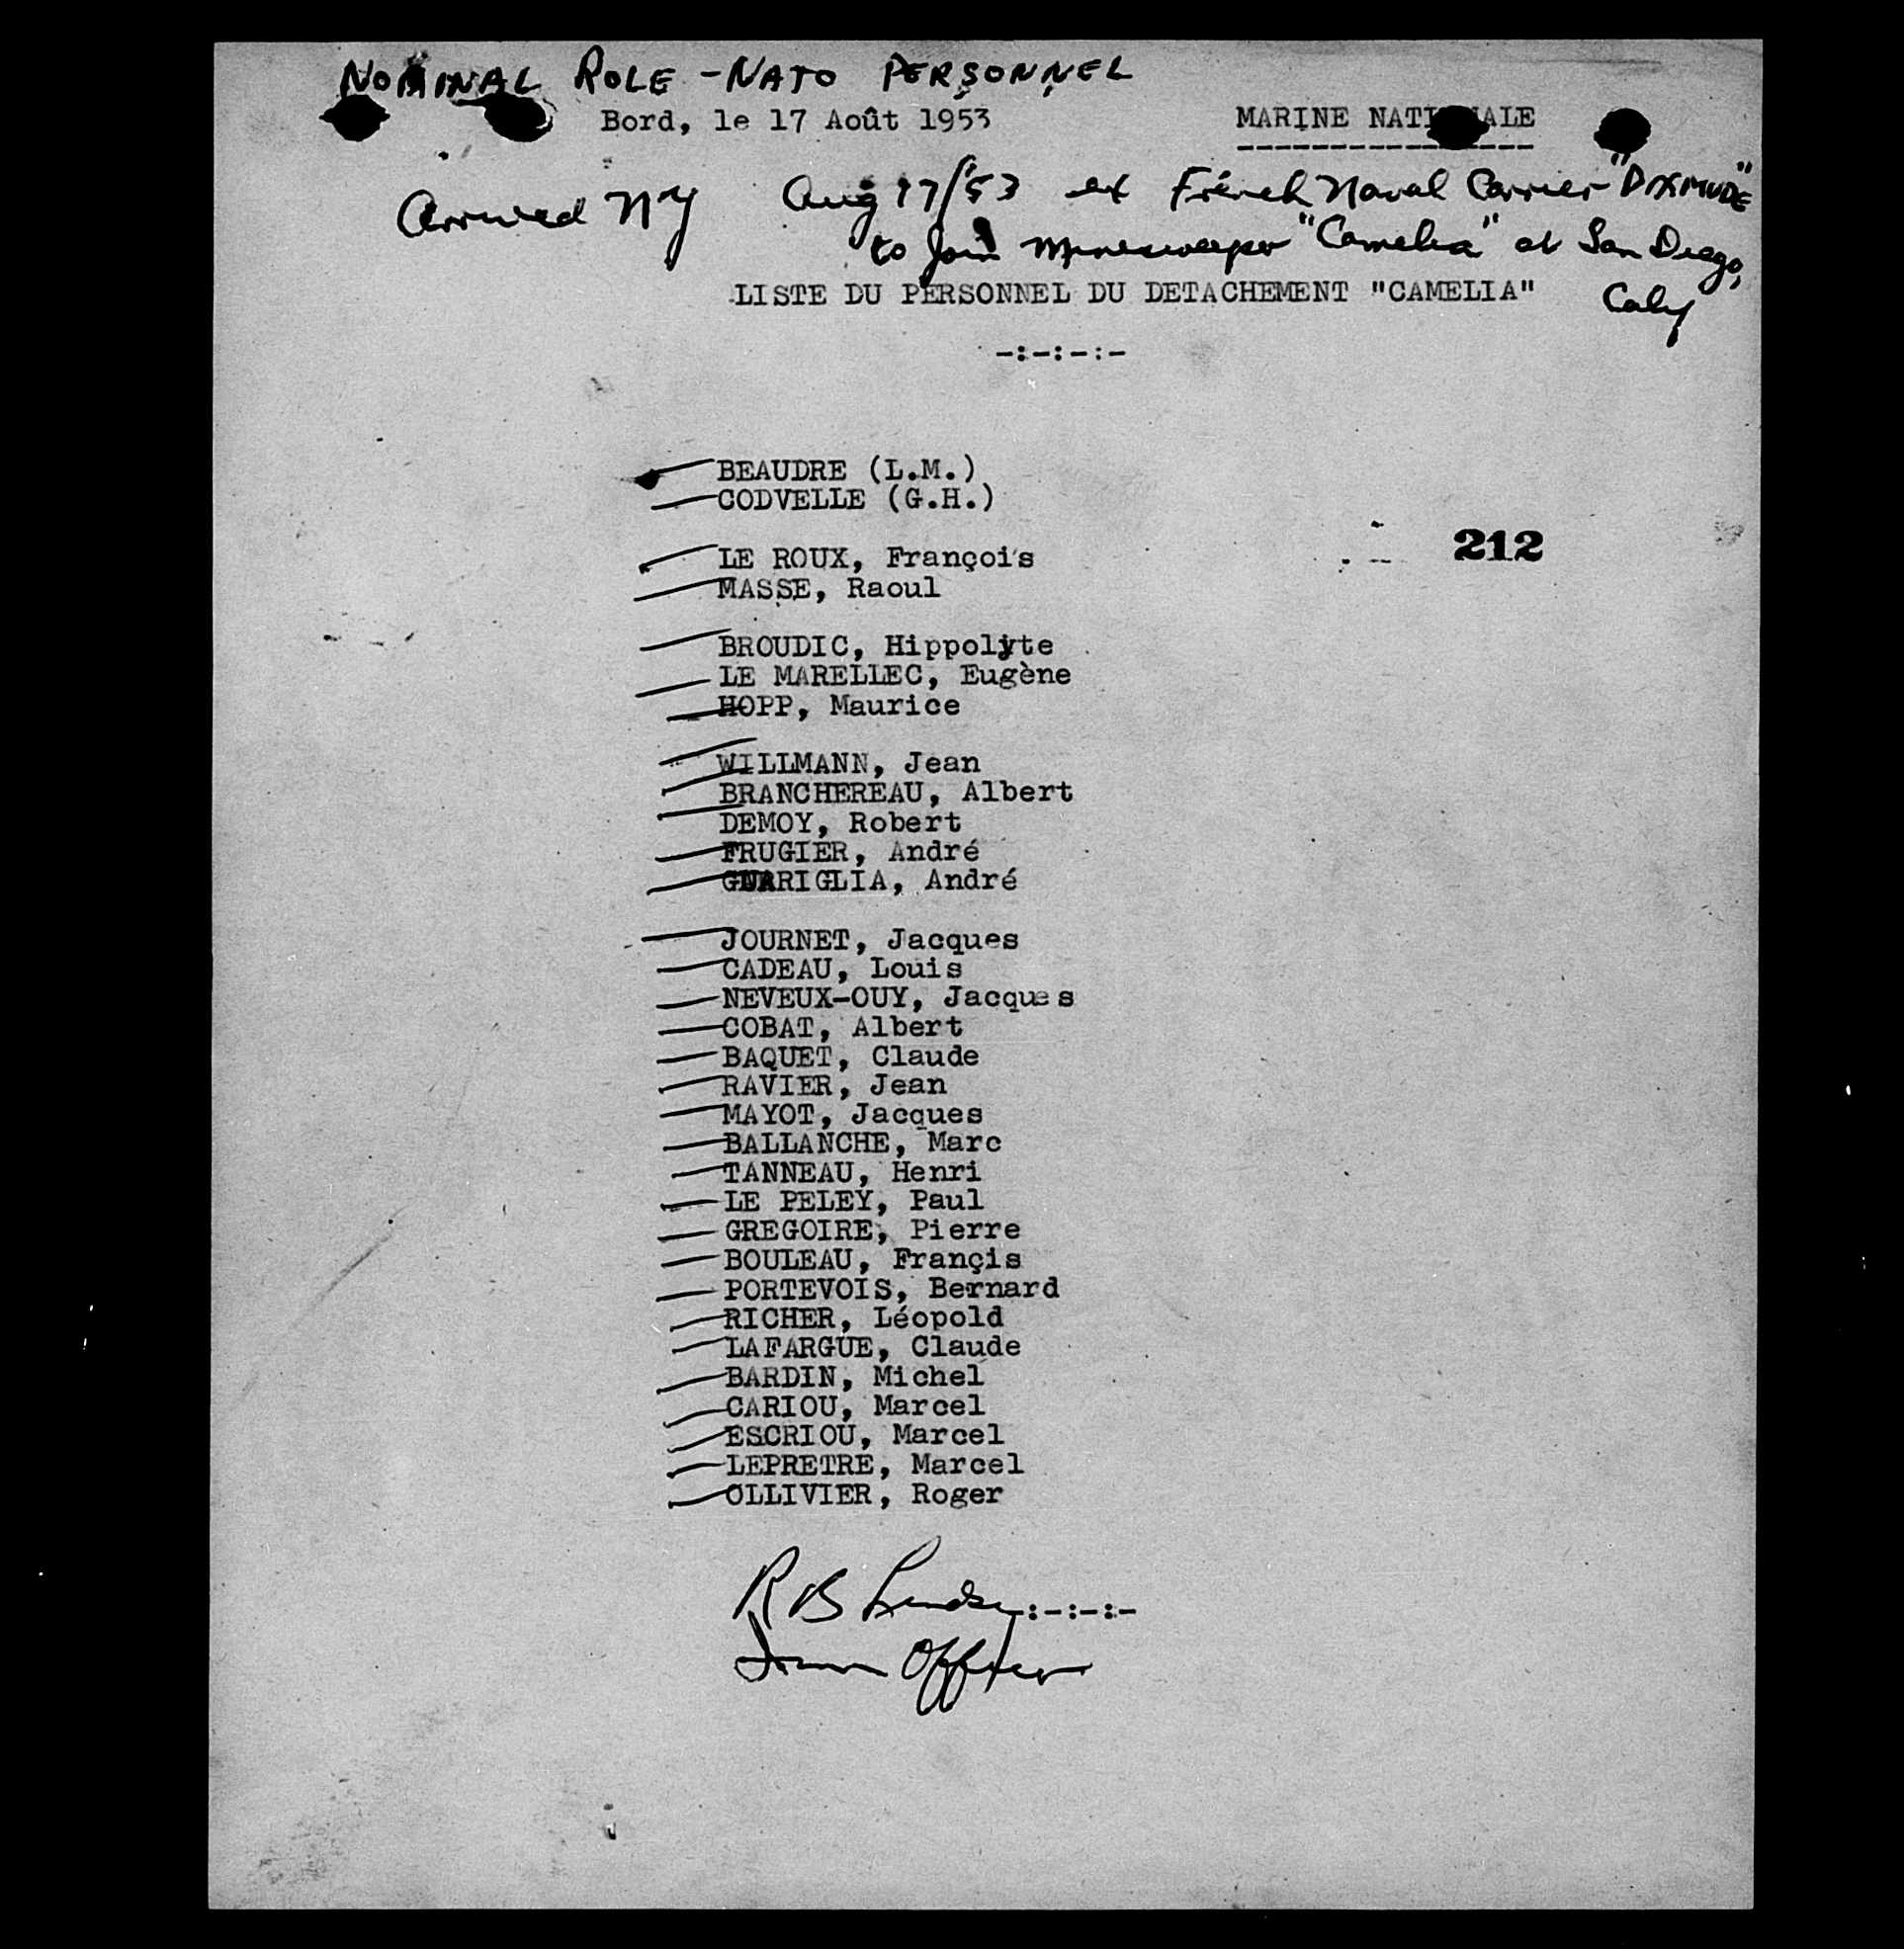 NOMINAL ROLE - NATO PERSONNEL
Bord, le 17 Août 1953 MARINE NATIONALE
Arrived NY Aug 17/53 ex French Naval Carrier "DIXMUDE"
to join Minesweeper "Camelia" at San Diego,
Calif
LISTE DU PERSONNEL DU DETACHEMENT "CAMELIA"
-:-:-:-
BEAUDRE (L.M.)
CODVELLE (G.H.)
212
LE ROUX, François
MASSE, Raoul
BROUDIC, Hippolyte
LE MARELLEC, Eugène
HOPP, Maurice
WILLMANN, Jean
BRANCHEREAU, Albert
DEMOY, Robert
FRUGIER, André
GUARIGLIA, André
JOURNET, Jacques
CADEAU, Louis
NEVEUX-OUY, Jacques
COBAT, Albert
BAQUET, Claude
RAVIER, Jean
MAYOT, Jacques
BALLANCHE, Marc
TANNEAU, Henri
LE PELEY, Paul
GREGOIRE, Pierre
BOULEAU, Françis
PORTEVOIS, Bernard
RICHER, Léopold
LAFARGUE, Claude
BARDIN, Michel
CARIOU, Marcel
ESCRIOU, Marcel
LEPRETRE, Marcel
OLLIVIER, Roger
R B :-:-:-
Officer